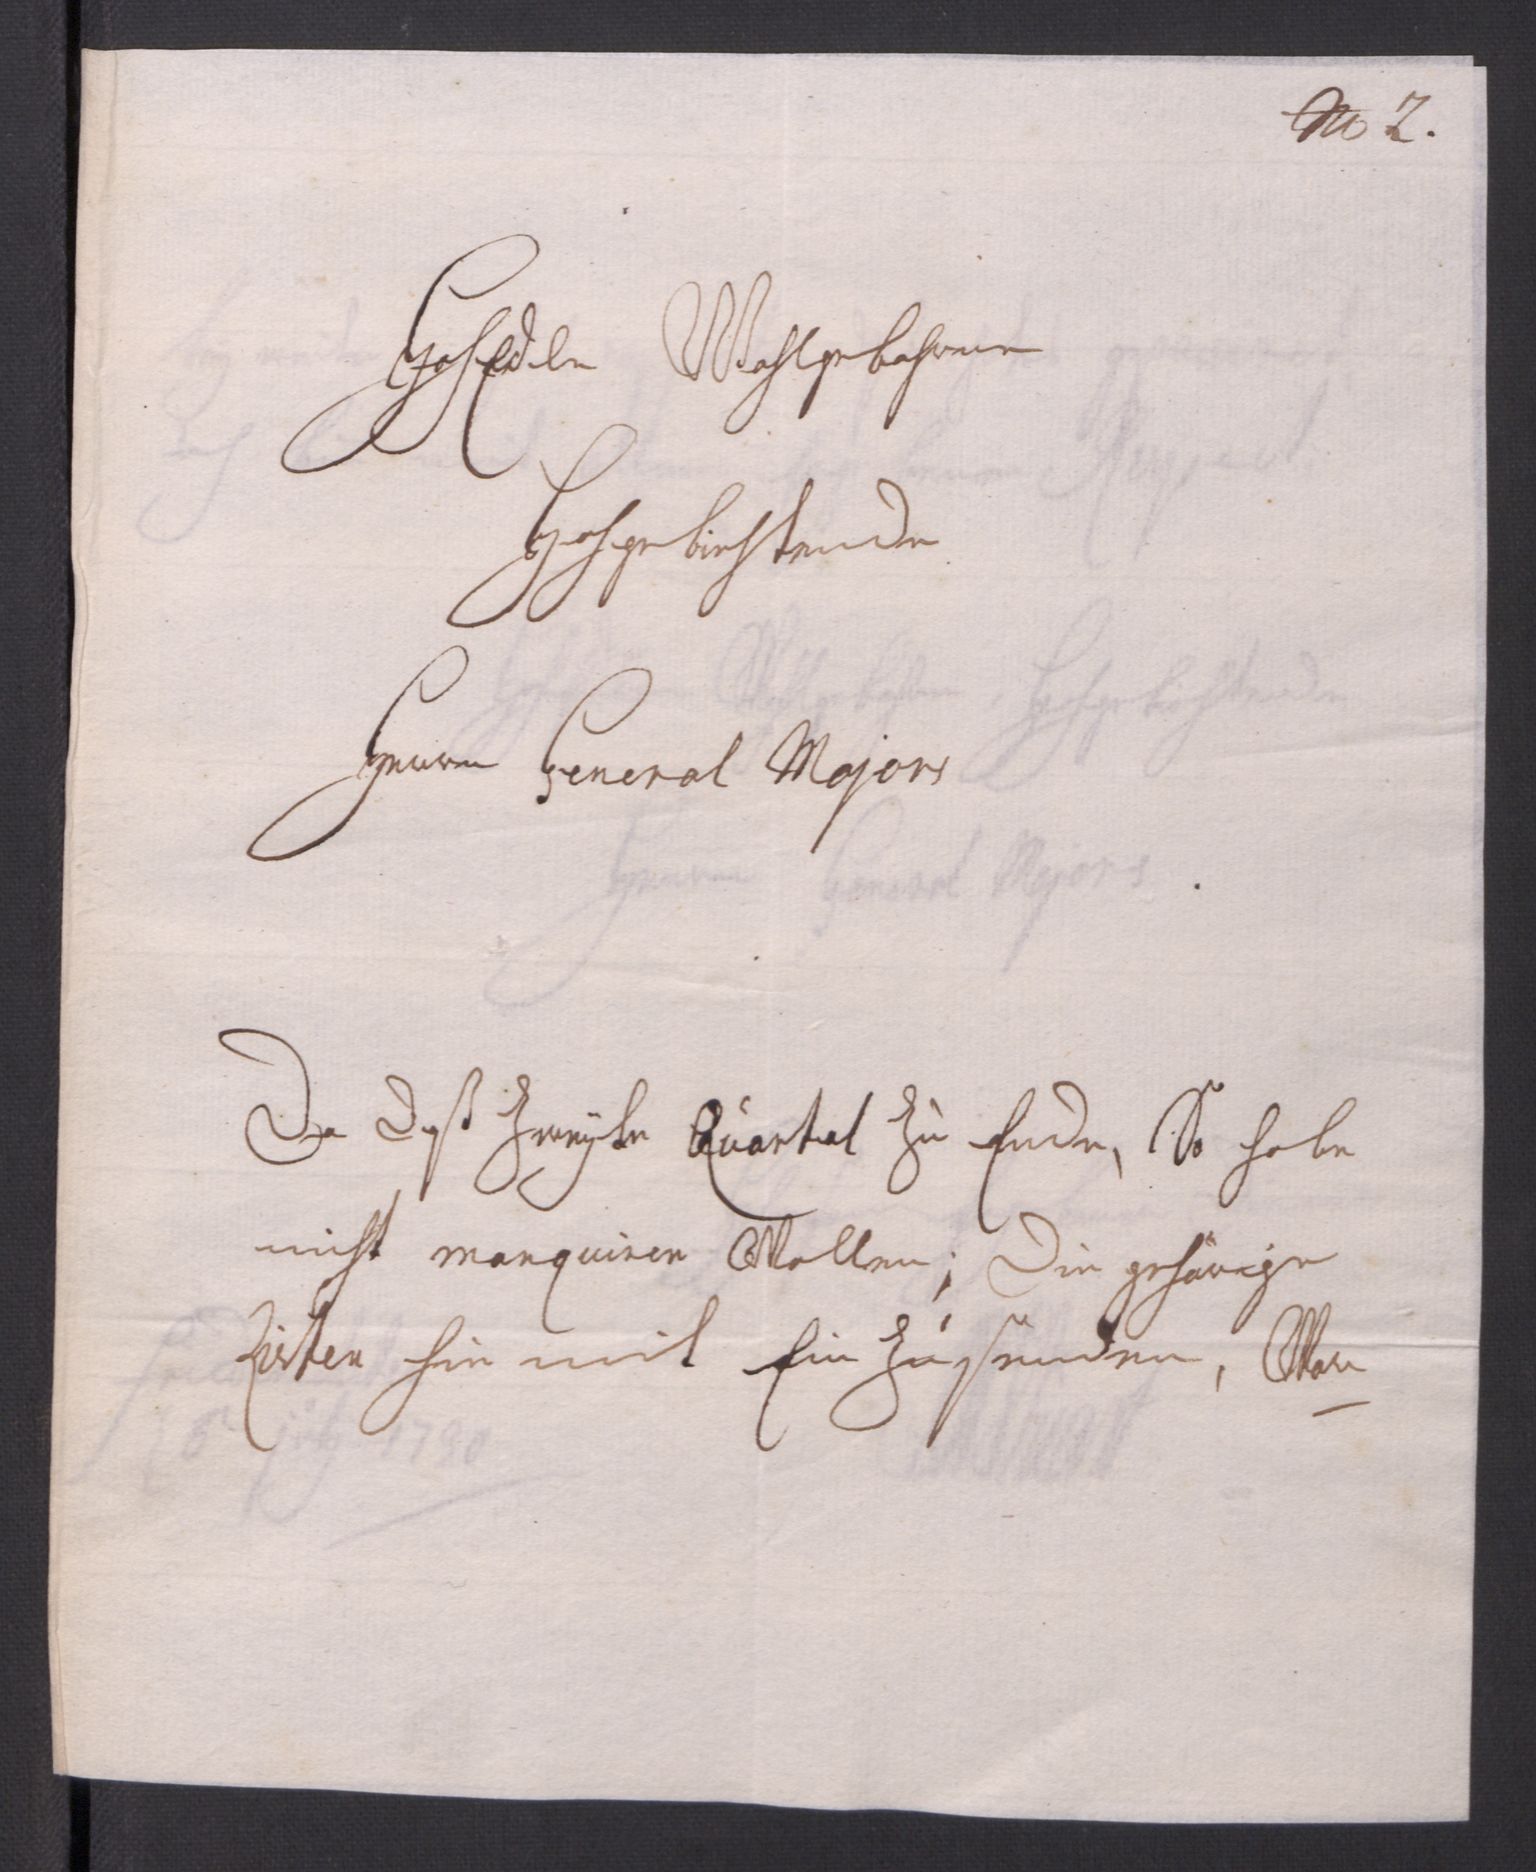 No 2.
HochEdle Wohlgebohrne
Hochgebiethende
Herren General Majors
Da daß Zweÿte Quartal zu Ende, So habe
nicht manquiren Wollen; Die gehörige
Listen hie mit Ein zu senden, Wor